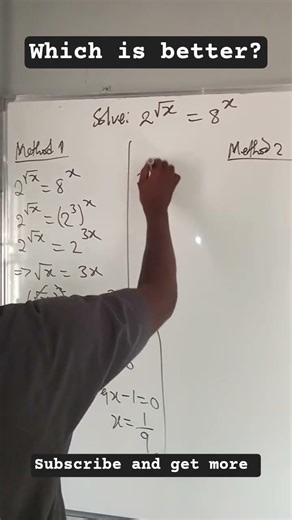 Which is better?
Solve: 2^√x = 8^x
Method 1
2^√x = 8^x
2^√x = (2^3)^x
2^√x = 2^3x
⇒ √x = 3x
9x-1=0
x = 1/9
Method 2
Subscribe and get more